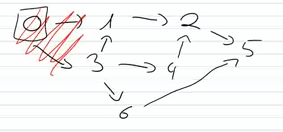 0 → 1 → 2
3 → 4 5
6